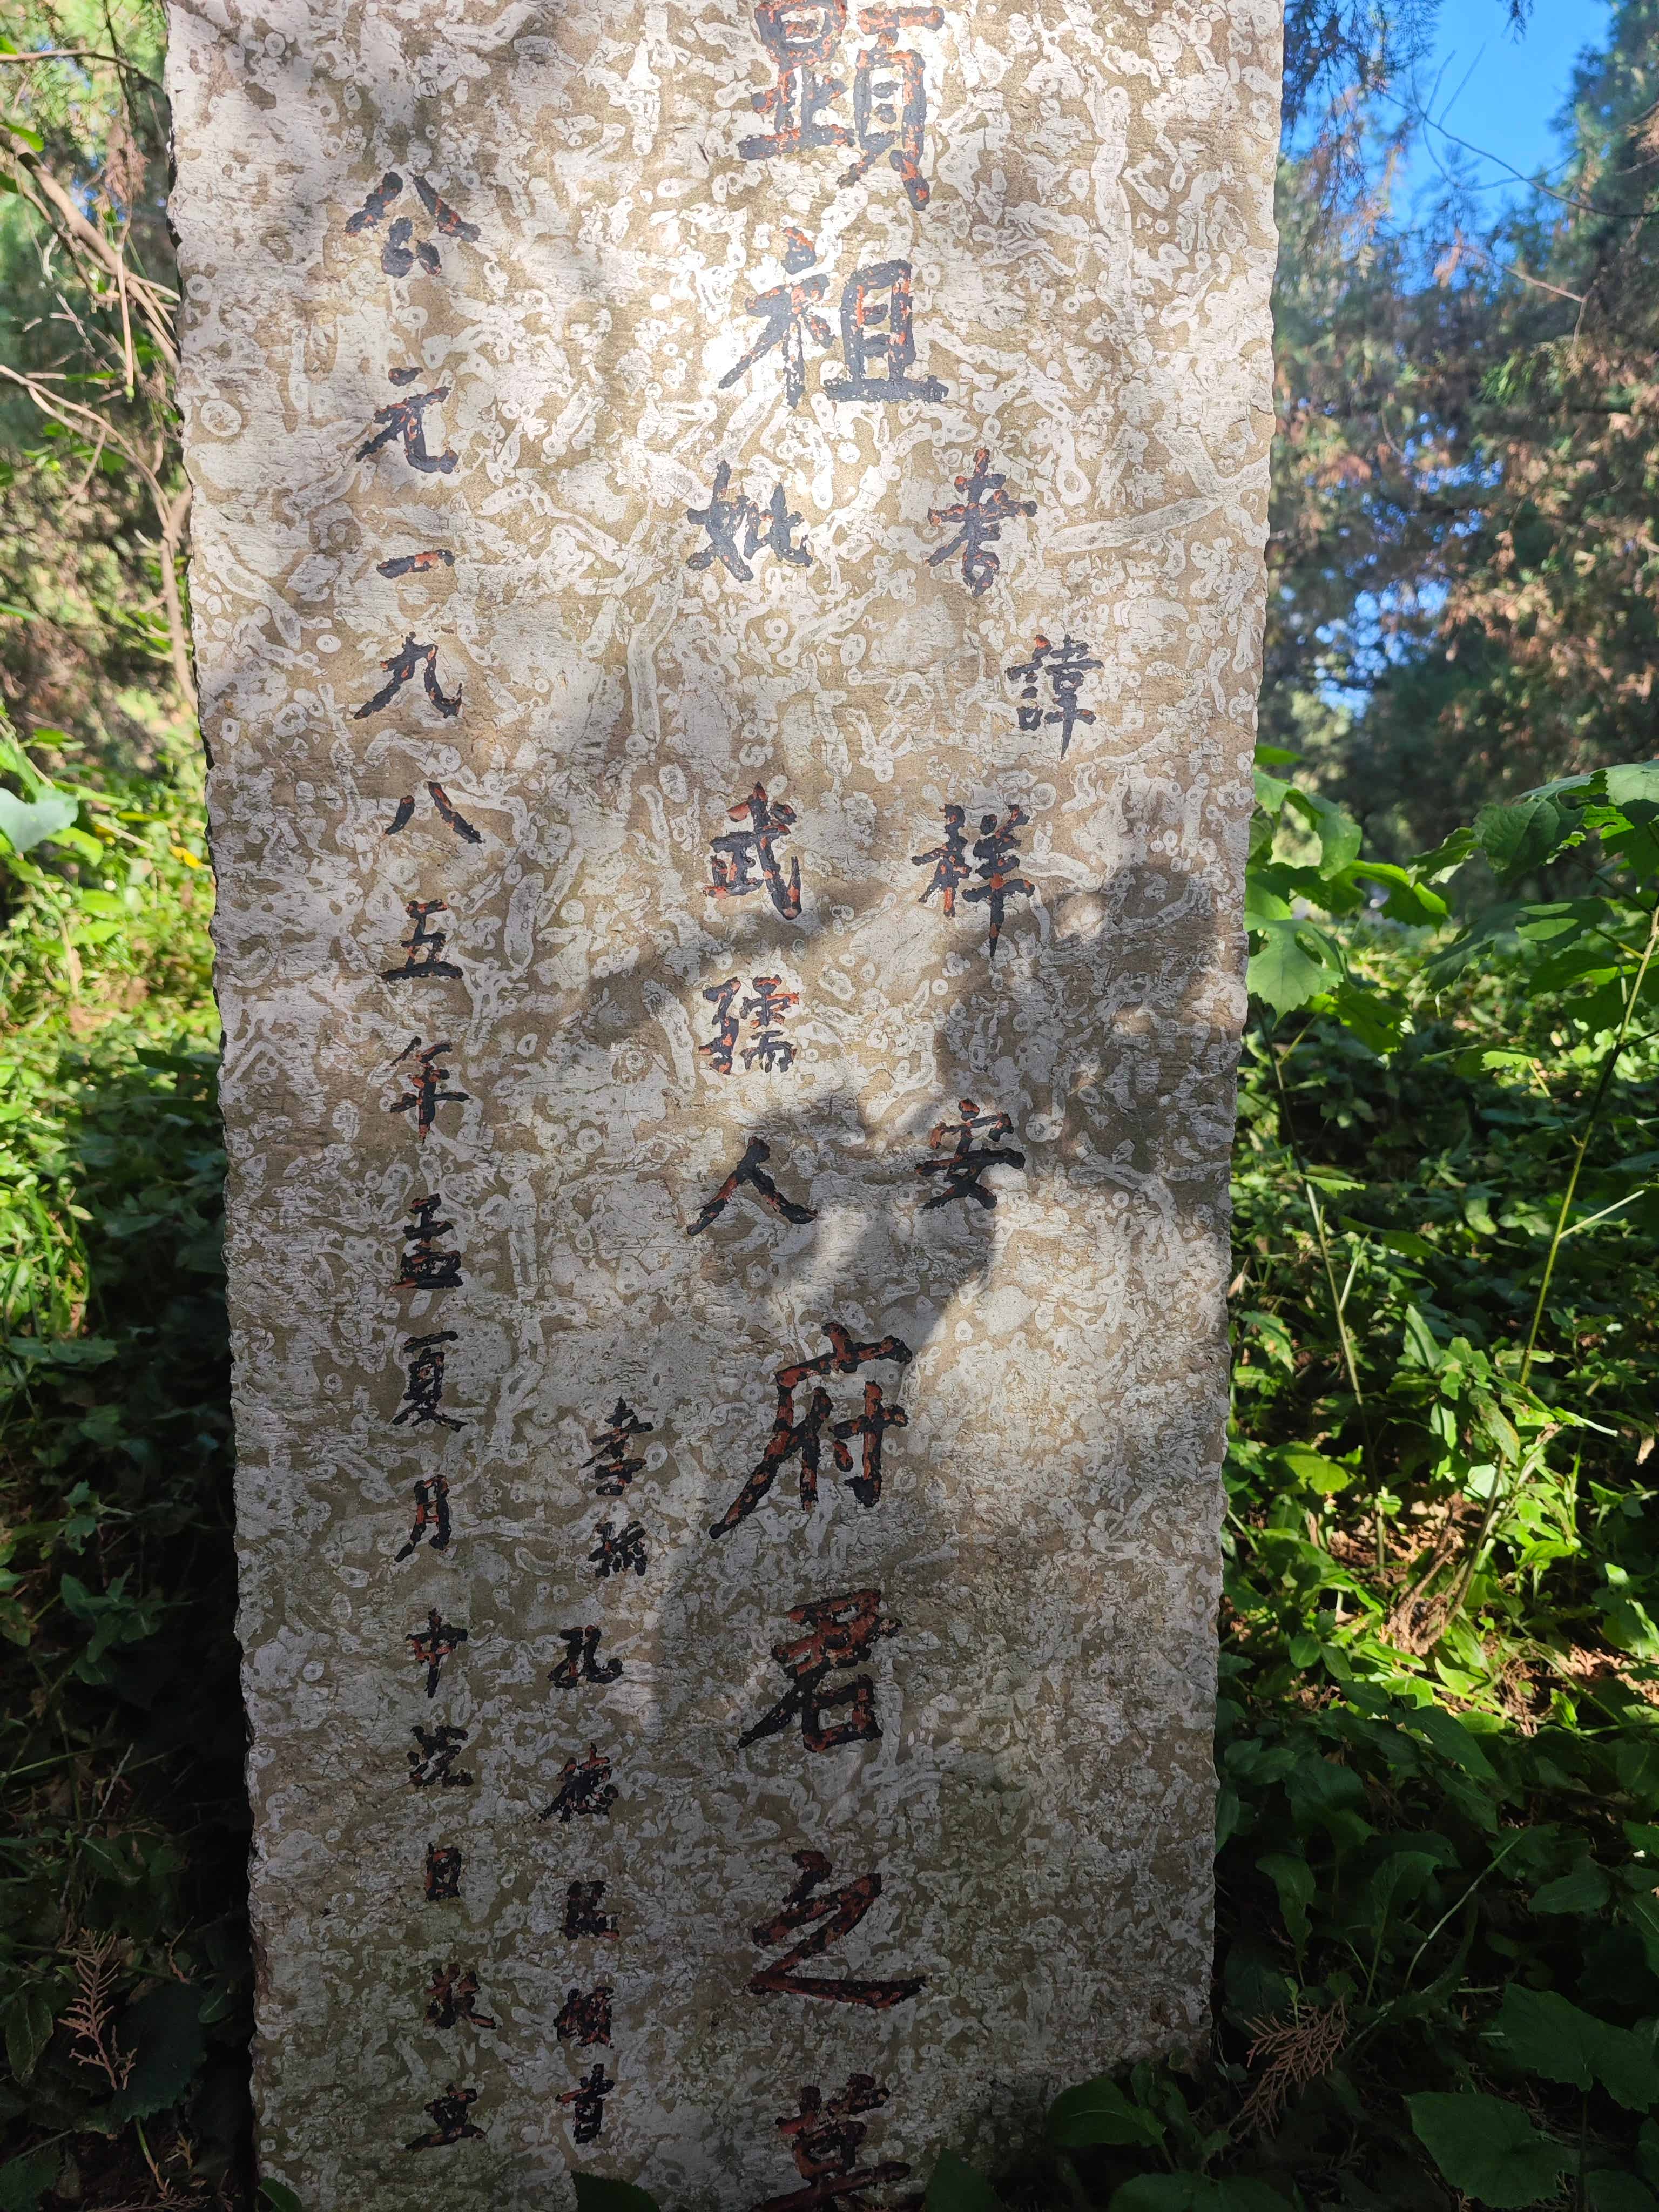 顕祖
考諱祥安
妣武孺人
府君之墓
孝孫孔德頓首
公元一九八五年孟夏月中浣日敬立